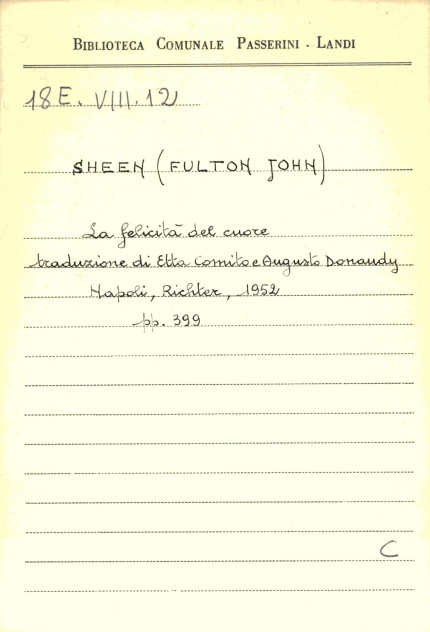 BIBLIOTECA COMUNALE PASSERINI - LANDI
18 E. VIII. 12
SHEEN (FULTON JOHN)
La felicità del cuore
traduzione di Etta Comito e Augusto Donaudy
Napoli, Richter, 1952
pp. 399
C